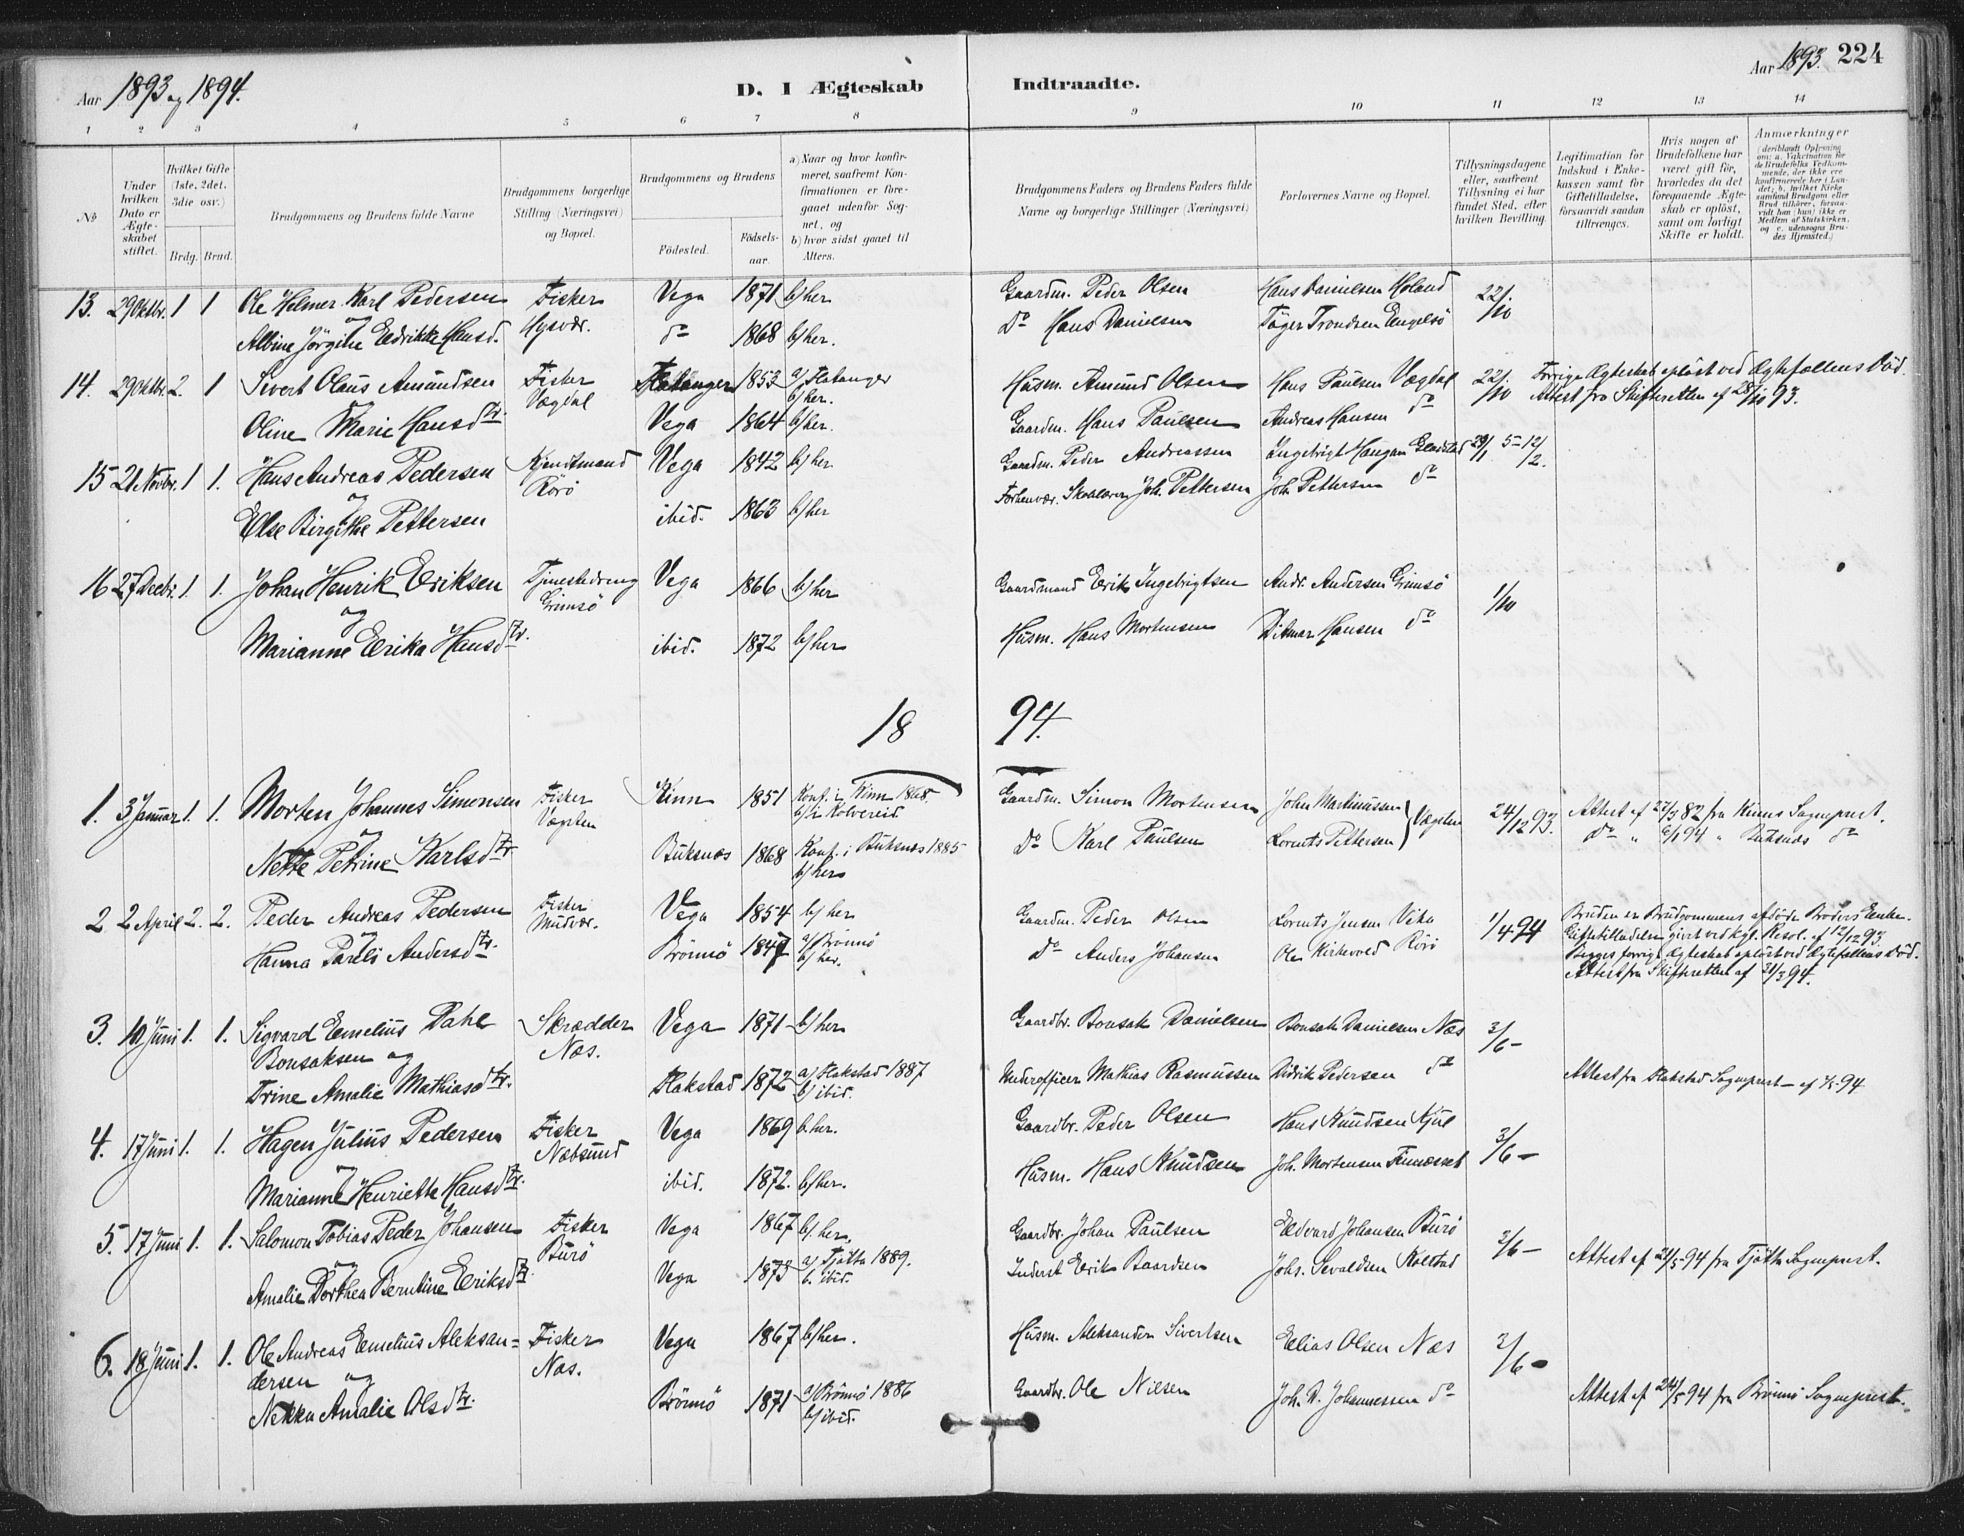 Aar 1893 og 1894.
D. I Ægteskab Indtraadte.
Aar 1893. 224
1 2 3 4 5 6 7 8 9 10 11 12 13 14
No
Under hvilken Dato er Ægteskabet stiftet.
Hvilket Gifte (1ste, 2det, 3die osv.)
Brdg. Brud.
Brudgommens og Brudens fulde Navne
Brudgommens borgerlige Stilling (Næringsvei) og Bopæl.
Brudgommens og Brudens
Fødested. Fødselsaar.
a) Naar og hvor konfirmeret, saafremt Konfirmationen er foregaaet udenfor Sognet, og
b) hvor sidst gaaet til Alters.
Brudgommens Faders og Brudens Faders fulde Navne og borgerlige Stillinger (Næringsvei)
Forlovernes Navne og Bopæl.
Tillysningsdagene eller, saafremt Tillysning ei har fundet Sted, efter hvilken Bevilling.
Legitimation for Indskud i Enkekassen samt for Giftetilladelse, forsaavidt saadan tiltrænges.
Hvis nogen af Brudefolkene har været gift før, hvorledes da det foregaaende Ægteskab er opløst, samt om lovligt Skifte er holdt.
Anmærkninger (deriblandt Oplysning om: a. Vakcination for de Brudefolks Vedkommende, der ikke ere konfirmerede her i Landet; b. hvilket Kirkesamfund Brudgom eller Brud tilhører, forsaavidt han (hun) ikke er Medlem af Statskirken, og c. udensogns Brudes Hjemsted.)
13. 29 Oktbr. 1 1 Ole Helmer Karl Pedersen Fisker Vega 1871 b/ her Gaardm. Peder Olsen Hans Danielsen Holand 22/10
og Hysvær.
Albine Jörgine Hansd. do 1868 b/ her. Do Hans Danielsen Töger Trondsen Engelsö
14. 29 Oktbr. 2. 1 Sivert Olaus Amundsen Fisker Flatanger 1853 a/ Flatanger Husm. Amund Olsen Hans Paulsen Vægdal 22/10 Forrige Ægteskab oplöst ved Ægtefællens Död.
Vægdal b/ her. Attest fra Skifteretten af 28/10 93.
Oline Marie Hansdtr. Vega 1864 b/ her. Gaardm. Hans Paulsen Andreas Hansen do
15 21 Novbr. 1 1. Hans Andreas Pedersen Kjendtmand Vega 1842 b/ her Gaardm. Peder Andreassen Ingebrigt Haugan
og Rörö
Else Birgithe Pettersen ibid. 1863 b/ her Forhenvær. Skolelærer Joh. Pettersen Joh. Pettersen do
16 27 Decbr. 1. 1. Johan Henrik Eriksen Tjenestedreng Vega 1866 b/ her Gaardmand Erik Ingebrigtsen Andr. Andersen Grimsö 1/10
og Grimsö
Marianne Erika Hansdtr. ibid. 1872 b/ her Husm. Hans Mortensen Ditmar Hansen do
1894.
1. 3 Januar 1. 1. Morten Johannes Simonsen Fisker Kinn 1851 Konf. i Kinn 1868. Gaardm. Simon Mortensen John Martinussen 24/12 93. Attest af 22/3 82 fra Kinns Sogneprest.
og b/ i Kolvereid
Nette Petrine Karlsdtr Buksnæs 1868 Konf. i Buksnæs 1885 Do Karl Paulsen Lorents Pettersen do " 6/1 94 " Buksnæs do
b/ her
2 2 April 2. 2. Peder Andreas Pedersen Fisker Vega 1854 b/ her Gaardm. Peder Olsen Lorents Jensen Vika 1/4 94 Bruden er Brudgommens afdöde Broders Enke.
Mudvær. Giftetilladelse givet ved kgl. Resol. af 12/12 93.
Hanna Andersdtr. Brönnö 1847 a/ Brönnö Do Anders Johansen Ole Kirkered Rörö Begges forrige Ægteskab oplöst ved Ægtefællens Död.
b/ her. Attest fra Skifteretten af 31/3 94.
3. 10 Juni 1. 1. Sigvard Emelius Dahl Skrædder Vega 1871 b/ her Gaardbr. Bonsak Danielsen Bonsak Danielsen Næs 3/6 -
Bonsaksen og Næs.
Trine Amalie Mathiasdtr. Flakstad 1872 a/ Flakstad 1887 Underofficer Mathias Rasmussen Didrik Pedersen do Attest fra Flakstad Sogneprest
b/ ibid.
4. 17 Juni 1. 1. Hagen Julius Pedersen Fisker Vega 1869 b. her. Gaardbr. Peder Olsen Hans Knudsen Kjul 3/6 -
og Næbsund
Marianne Henriette Hansdtr. ibid. 1872. b/ her. Husm. Hans Knudsen Joh. Mortensen
5. 17 Juni 1. 1. Salomon Tobias Peder Johansen Fisker Vega 1867 b/. her, Gaardbr. Johan Paulsen Edvard Johansen Burö 3/6 -
og Burö
Amalie Dorthea Berntine Eriksdtr. Vega 1873 a/ Tjötta 1889. Inderst Erik Baardsen Johs. Sevaldsen Kolstad Attest af 21/5 94 fra Tjötta Sogneprest.
b. ibid.
6. 18 Juni 1. 1. Ole Andreas Emelius Aleksan- Fisker Vega 1867 b/ her. Husm. Aleksander Sivertsen Elias Olsen Næs 3/6 -
dersen og Næs.
Nekka Amalie Olsdtr. Brönnö 1871 a/ Brönnö 1886 Gaardbr. Ole Nilsen Joh. D. Johannessen do Attest af 24/5 94 fra Brönnö Sogneprest.
b/ ibid.